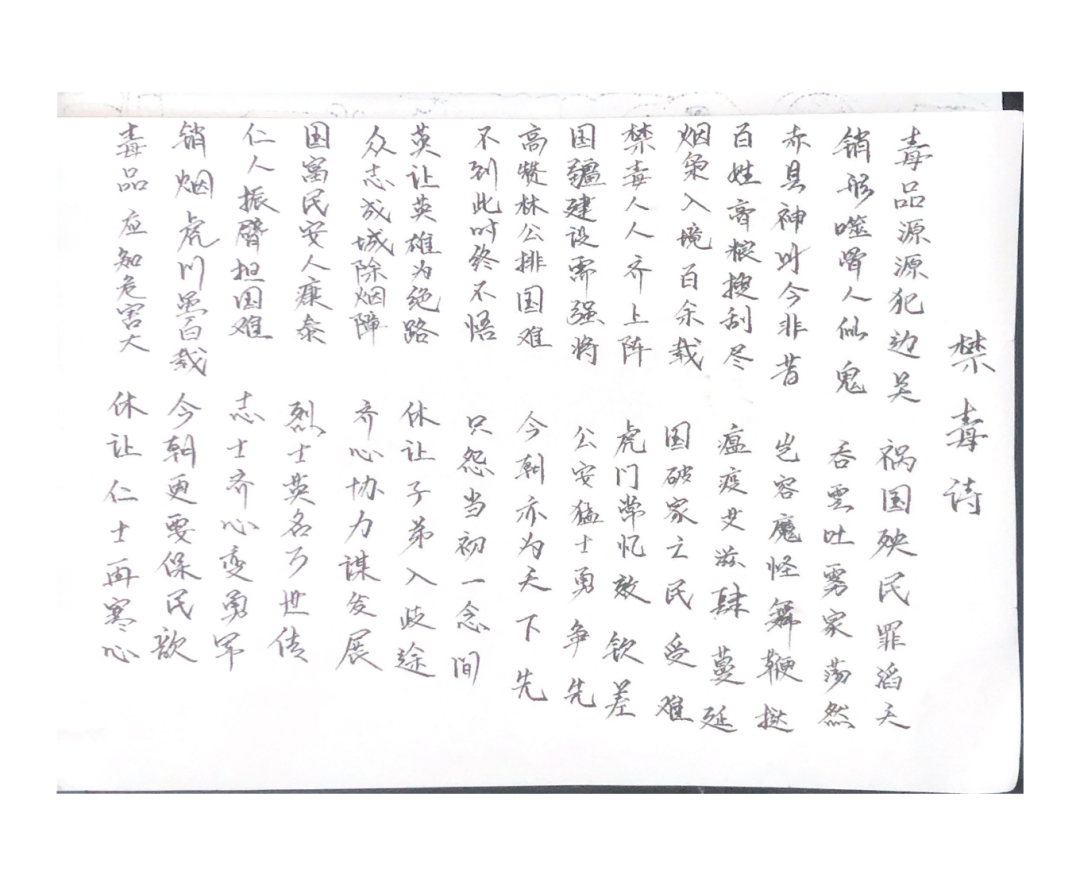 禁毒诗
毒品源源犯边关 祸国殃民罪滔天
销形噬骨人似鬼 吞雲吐雾家荡然
赤县神州今非昔 岂容魔怪舞鞭挞
百姓膏粮搜刮尽 瘟疫艾滋肆蔓延
烟枭入境百余载 国破家亡民受难
禁毒人人齐上阵 虎门常忆效钦差
国疆建设需强将 公安猛士勇争先
高赞林公排国难 今朝亦为天下先
不到此时终不悟 只怨当初一念间
英让英雄为绝路 休让子弟入歧途
众志成城除烟障 齐心协力谋发展
国富民安人康泰 烈士英名万世传
仁人振臂担国难 志士齐心变勇
销烟虎门百载 今朝更要保民
毒品应知危害大 休让仁士再寒心